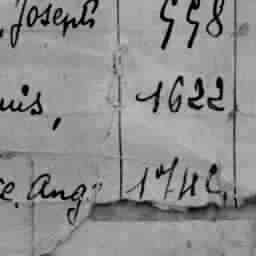 Joseph 998
uis, 1622
ce. Ang. 174